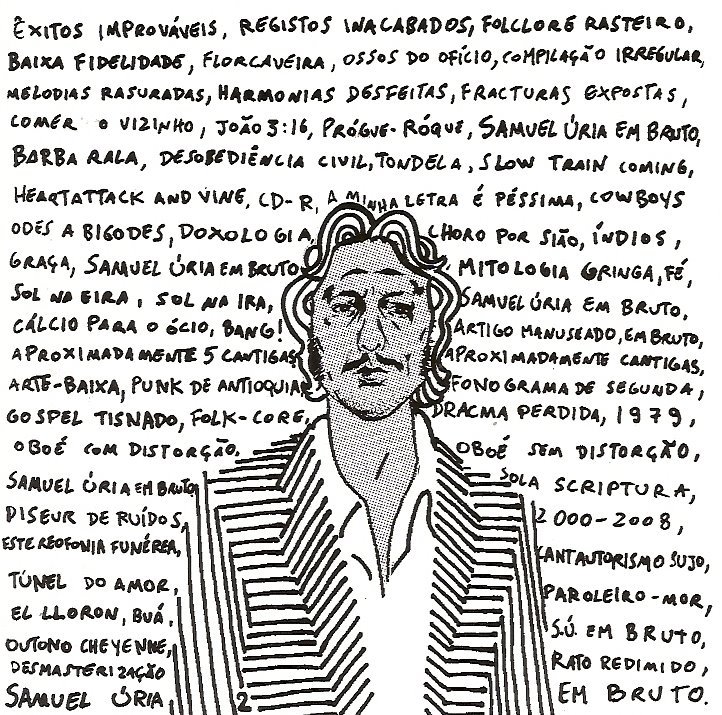 ÊXITOS IMPROVÁVEIS, REGISTOS INACABADOS, FOLCLORE RASTEIRO,
BAIXA FIDELIDADE, FLORCAVEIRA, OSSOS DO OFÍCIO, COMPILAÇÃO IRREGULAR,
MELODIAS RASURADAS, HARMONIAS DESFEITAS, FRACTURAS EXPOSTAS,
COMER O VIZINHO, JOÃO 3:16, PRÓGUE-RÓQUE, SAMUEL ÚRIA EM BRUTO,
BARBA RALA, DESOBEDIÊNCIA CIVIL, TONDELA, SLOW TRAIN COMING,
HEARTATTACK AND VINE, CD-R, A MINHA LETRA É PÉSSIMA, COWBOYS
ODES A BIGODES, DOXOLOGIA, CHORO POR SIÃO, ÍNDIOS,
GRAÇA, SAMUEL ÚRIA EM BRUTO MITOLOGIA GRINGA, FÉ,
SOL NA EIRA, SOL NA IRA, SAMUEL ÚRIA EM BRUTO,
CÁLCIO PARA O ÓCIO, BANG! ARTIGO MANUSEADO, EM BRUTO,
APROXIMADAMENTE 5 CANTIGAS APROXIMADAMENTE CANTIGAS,
ARTE-BAIXA, PUNK DE ANTIOQUIA FONOGRAMA DE SEGUNDA,
GOSPEL TISNADO, FOLK-CORE, DRACMA PERDIDA, 1979,
OBOÉ COM DISTORÇÃO. OBOÉ SEM DISTORÇÃO,
SAMUEL ÚRIA EM BRUTO, SOLA SCRIPTURA,
DISEUR DE RUÍDOS, 2000-2008,
ESTEREOFONIA FUNÉREA, CANTAUTORISMO SUJO,
TÚNEL DO AMOR, PAROLEIRO-MOR,
EL LLORON, BUÁ, S.Ú. EM BRUTO,
OUTONO CHEYENNE, RATO REDIMIDO,
DESMASTERIZAÇÃO
SAMUEL ÚRIA, 2 EM BRUTO.